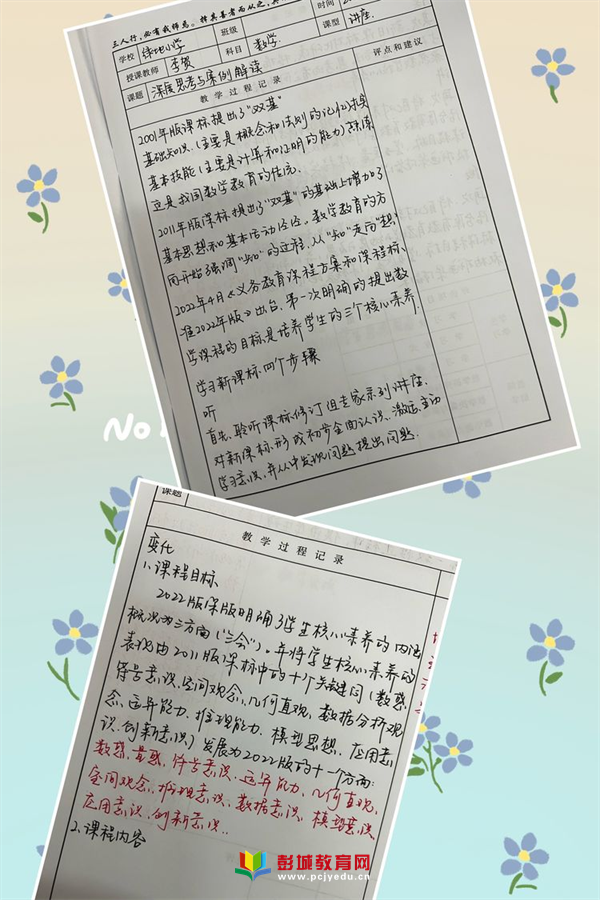 三人行,必有我师焉。择其善者而从之,其
学校
绿地小学
班级
时间
授课教师
李贺
科目
数学
课型
讲座
课题
深度思考与案例解读
教学过程记录
评点和建议
2001年版课标提出了"双基"
基础知识(主要是概念和法则的记忆)扎实
基本技能(主要是计算和证明的能力)熟练
这是我国数学教育的传统
2011年版课标提出了"双基"的基础上增加了
基本思想和基本活动经验。数学教育的方
向开始强调"知"的过程,从"知"走向"想"
2022年4月《义务教育课程方案和课程标
准2022年版》出台,第一次明确的提出数
学课程的目标是培养学生的三个核心素养.
学习新课标四个步骤
听
首先,聆听课标修订组专家系列讲座.
对新课标形成初步全面认识、激活主动
学习意识,并从中发现问题提出问题.
No
课题
教学过程记录
变化
1、课程目标
2022版课版明确了学生核心素养的内涵
概况为三方面("三会")。并将学生核心素养的
表现由2011版课标中的十个关键词(数感,
符号意识,空间观念,几何直观,数据分析观
念,运算能力,推理能力,模型思想,应用意
识,创新意识)发展为2022版的十一个方面:
数感、量感、符号意识、运算能力、几何直观、
空间观念、推理意识、数据意识、模型意识
应用意识、创新意识..
2、课程内容
彭城教育网
www.pcjyedu.cn